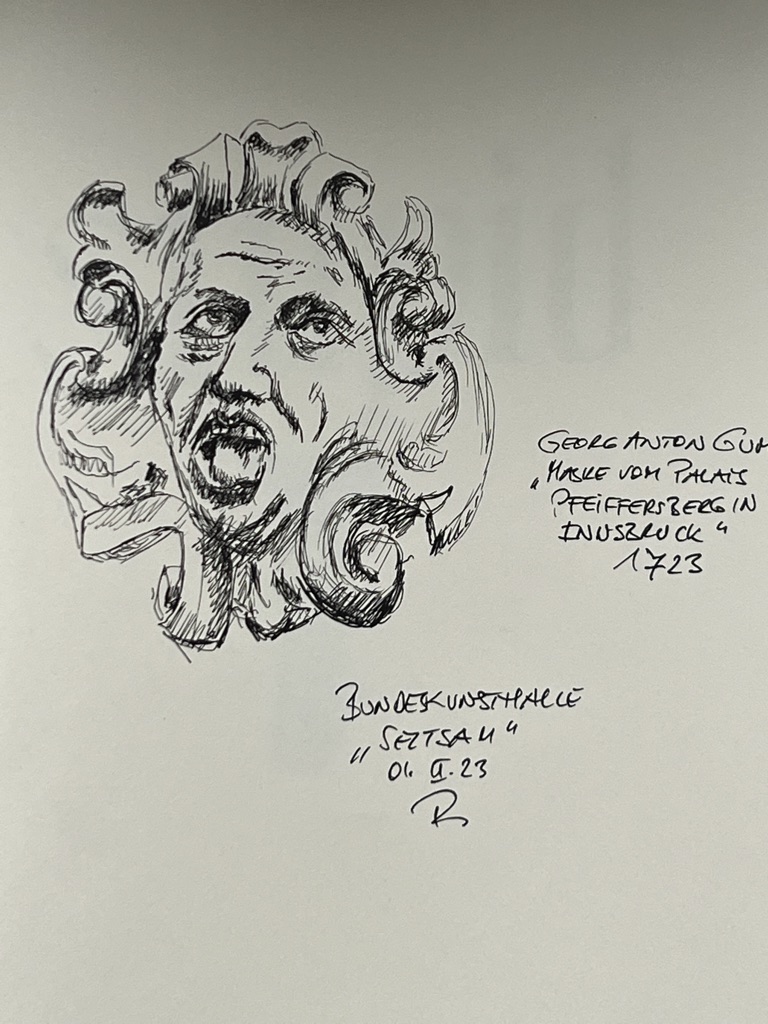 GEORG ANTON GUM
„MASKE VOM PALAIS
PFEIFFERSBERG IN
INNSBRUCK“
1723
BUNDESKUNSTHALLE
„SELTSAM“
01. II. 23
R